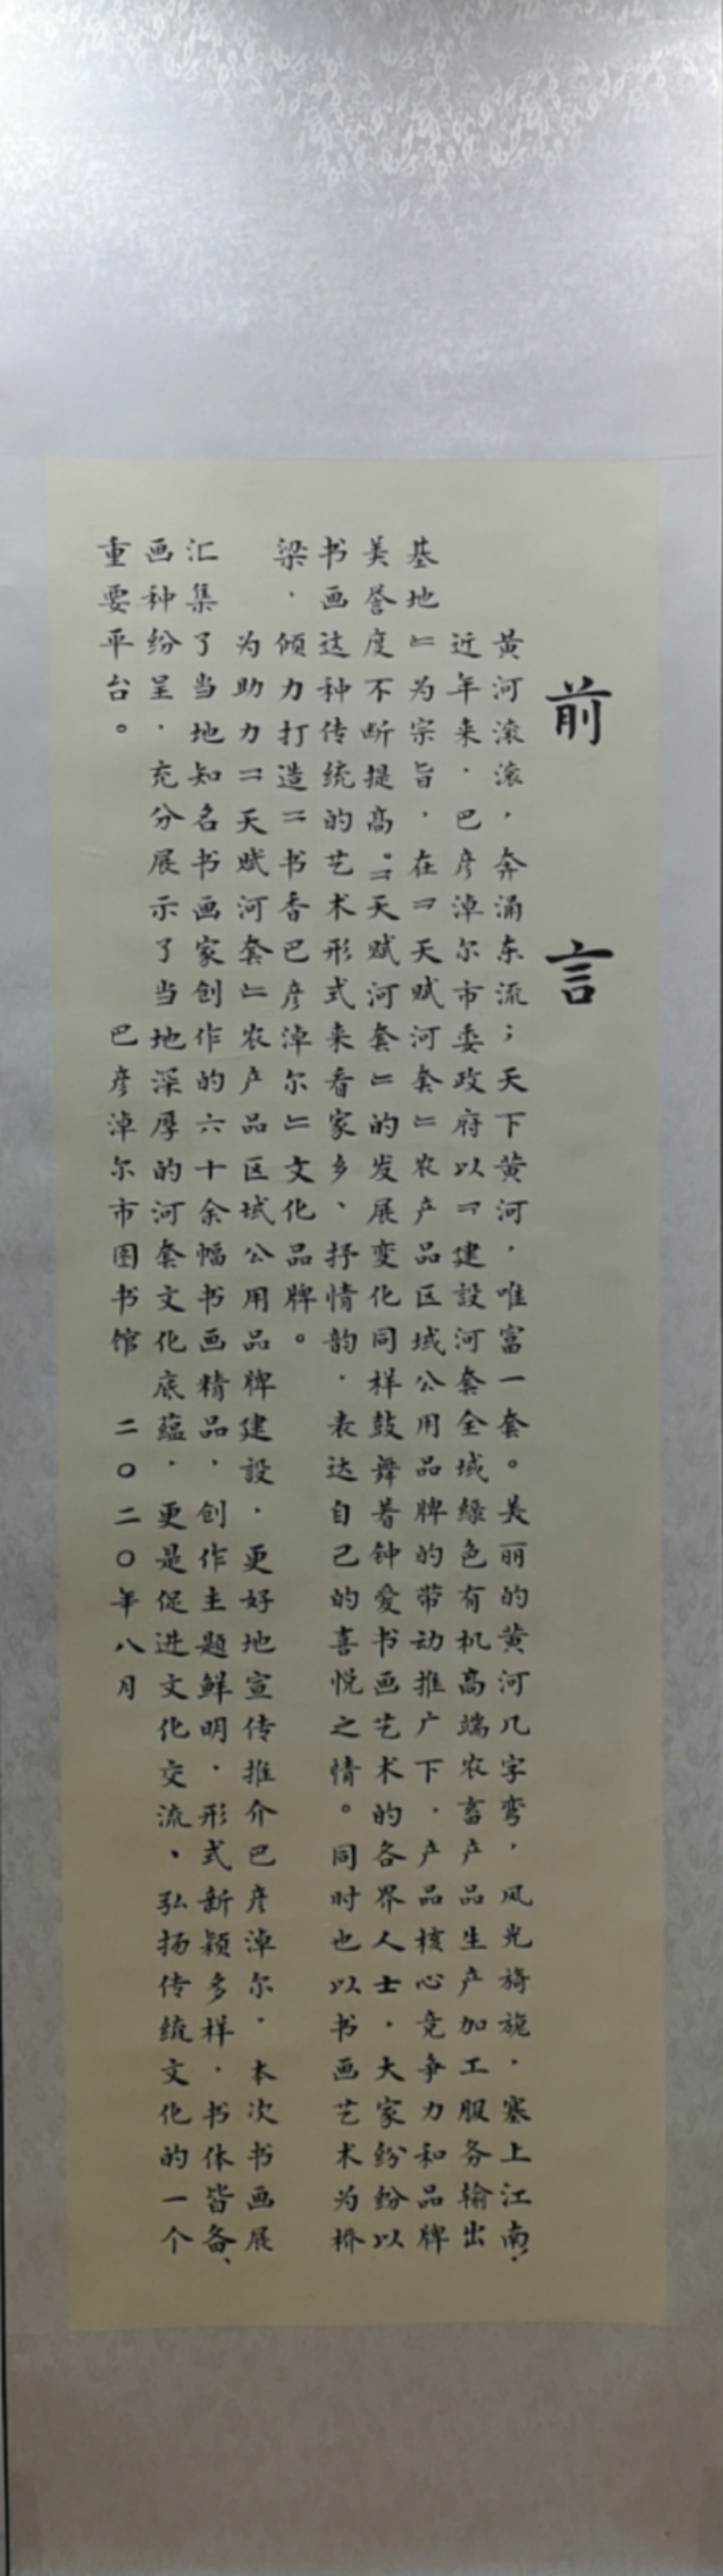 前言
黄河滚滚，奔涌东流；天下黄河，唯富一套。美丽的黄河几字弯，风光旖旎，塞上江南，
近年来，巴彦淖尔市委政府以“建設河套全域綠色有机高端农畜产品生产加工服务输出
基地”为宗旨，在“天赋河套”农产品区域公用品牌的带动推广下，产品核心竞争力和品牌
美誉度不断提高。“天赋河套”的发展变化同样鼓舞着钟爱书画艺术的各界人士，大家纷纷以
书画达种传统的艺术形式来看家乡、抒情韵，表达自己的喜悦之情。同时也以书画艺术为桥
梁，倾力打造“书香巴彦淖尔”文化品牌。
为助力“天赋河套”农产品区域公用品牌建設，更好地宣传推介巴彦淖尔，本次书画展
汇集了当地知名书画家创作的六十余幅书画精品，创作主题鲜明，形式新颖多样，书体皆备、
画种纷呈，充分展示了当地深厚的河套文化底蕴，更是促进文化交流、弘扬传统文化的一个
重要平台。
巴彦淖尔市图书馆 二〇二〇年八月